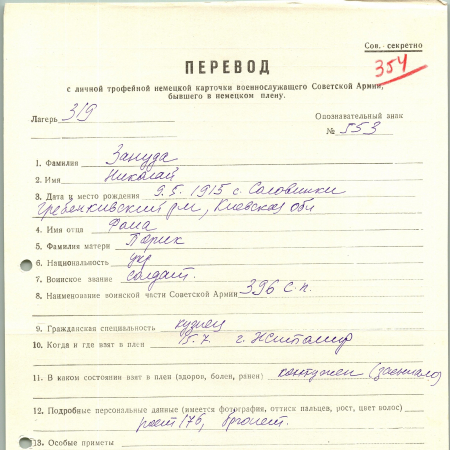 Сов. секретно
354
ПЕРЕВОД
с личной трофейной немецкой карточки военнослужащего Советской Армии,
бывшего в немецком плену.
Лагерь 319
Опознавательный знак
№ 553
1. Фамилия Зануда
2. Имя Николай
3. Дата и место рождения 9.5.1915 с. Саловишки
Гребенкивский р-н, Киевская обл
4. Имя отца Фома
5. Фамилия матери Парик
6. Национальность укр
7. Воинское звание солдат.
8. Наименование воинской части Советской Армии 396 с.п.
9. Гражданская специальность кузнец
10. Когда и где взят в плен 15.7. г. Житомир
11. В каком состоянии взят в плен (здоров, болен, ранен) контужен (засыпало)
12. Подробные персональные данные (имеется фотография, оттиск пальцев, рост, цвет волос)
рост 176, брюнет.
13. Особые приметы